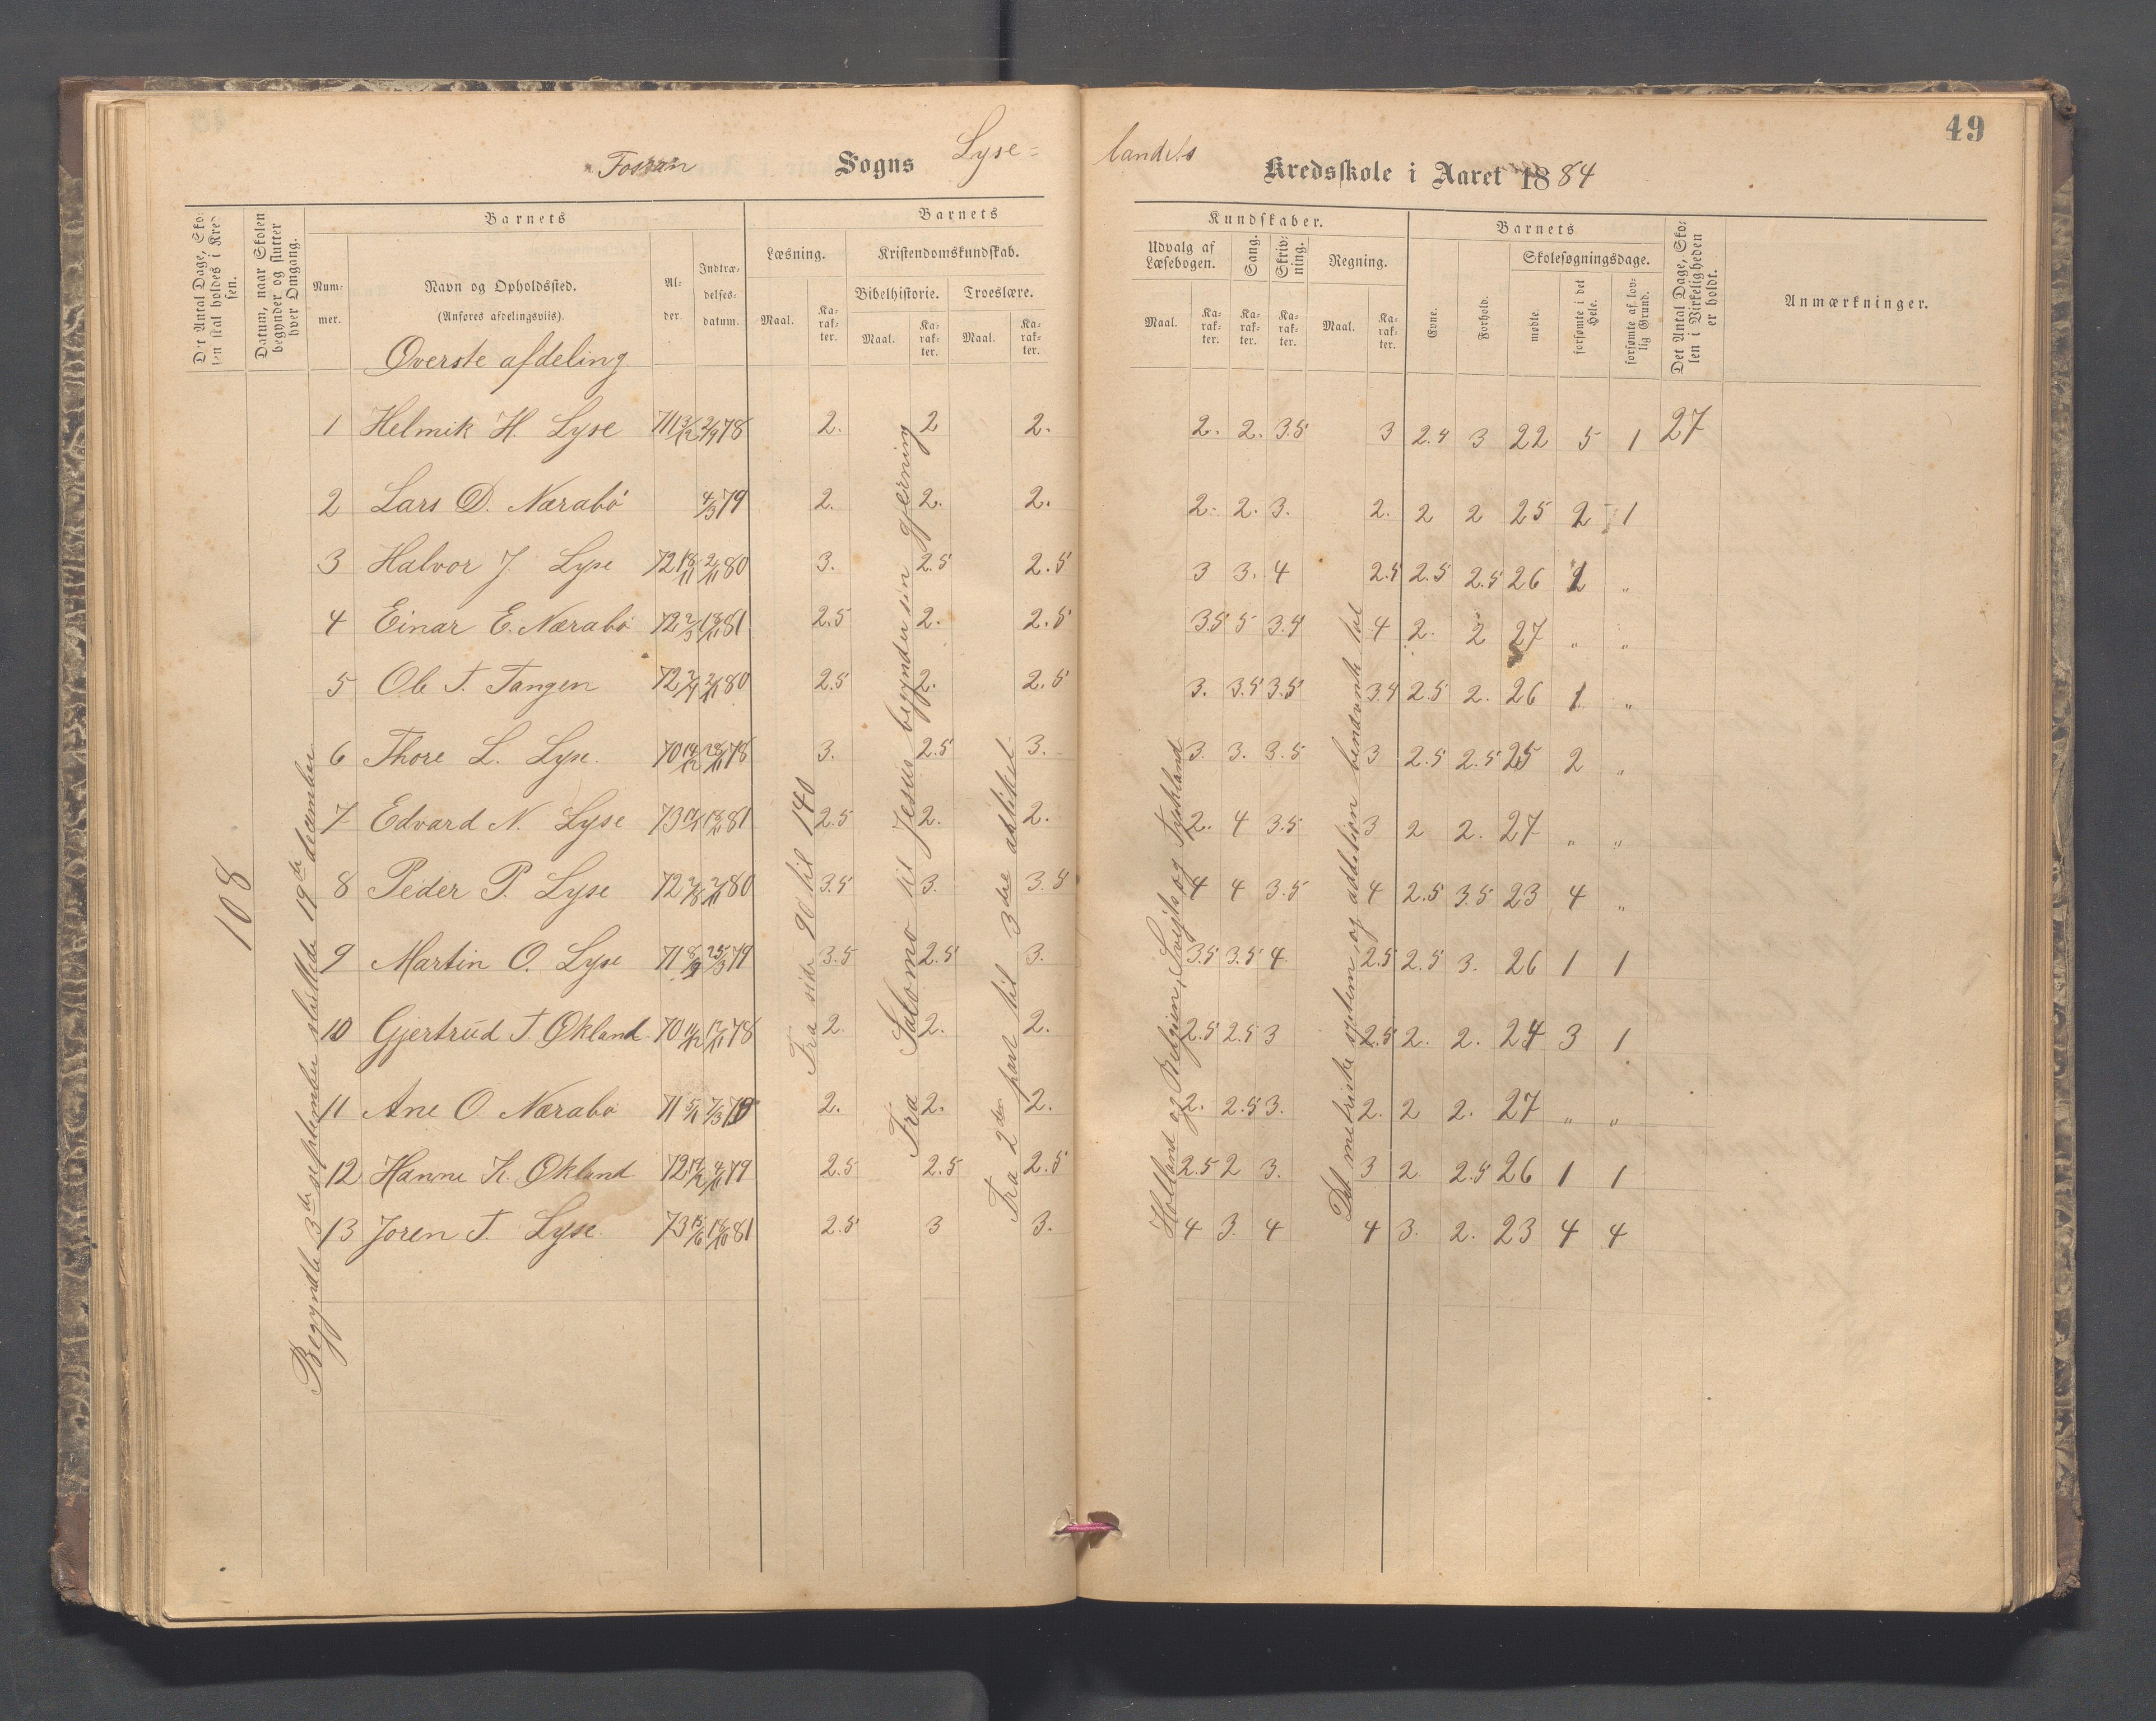 49
Fossan Sogns Lyse=
landets Kredsskole i Aaret 1884
Det Antal Dage, Skolen skal holdes i Kredsen.
Datum, naar Skolen begynder og slutter hver Omgang.
Barnets
Nummer.
Navn og Opholdssted.
(Anføres afdelingsviis).
Alder.
Indtrædelses-datum.
Barnets
Læsning.
Maal.
Karakter.
Kristendomskundskab.
Bibelhistorie.
Maal.
Karakter.
Troeslære.
Maal.
Karakter.
Kundskaber.
Udvalg af Læsebogen.
Maal.
Karakter.
Sang.
Karakter.
Skrivning.
Karakter.
Regning.
Maal.
Karakter.
Barnets
Evne.
Forhold.
Skolesøgningsdage.
mødte.
forsømte i det Hele.
forsømte af lovlig Grund.
Det Antal Dage, Skolen i Virkeligheden er holdt.
Anmærkninger.
Øverste afdeling
108
Begyndte 3die september sluttede 19de december
Fra side 90 til 140
Fra Salomo til Jesus begynder sin gjerning
Fra 2den part til 3die artikel
Holland og Belgien, Sveits og Tyskland
Det metriske system og addition benævnte tal
1 Helmik H. Lyse 71 13/12 2/9 78 2. 2 2. 2. 2. 3.5 3 2.4 3 22 5 1 27
2 Lars D. Nærabø 4/3 79 2. 2. 2. 2. 2. 3. 2. 2 2 25 2 1
3 Halvor J. Lyse 72 18/11 2/11 80 3. 2.5 2.5 3 3. 4 2.5 2.5 2.5 26 1 "
4 Einar E. Nærabø 72 2/3 18/11 81 2.5 2. 2.5 3.5 5 3.4 4 2. 2 27 " "
5 Ole T. Tangen 72 2/4 2/11 80 2.5 2. 2.5 3. 3.5 3.5 3.4 2.5 2. 26 1 "
6 Thore L. Lyse. 70 14/12 28/11 78 3. 2.5 3. 3. 3. 3.5 3 2.5 2.5 25 2 "
7 Edvard N. Lyse 73 81 2.5 2. 2. 2. 4 3.5 3 2 2. 27 " "
8 Peder P. Lyse 72 2/8 2/11 80 3.5 3. 3.5 4 4 3.5 4 2.5 3.5 23 4 "
9 Martin O. Lyse 71 8/9 25/3 79 3.5 2.5 3. 3.5 3.5 4. 2.5 2.5 3. 26 1 1
10 Gjertrud T. Økland 70 17/11 78 2. 2. 2. 2.5 2.5 3 2.5 2. 2. 24 3 1
11 Ane O. Nærabø 71 5/4 7/3 79 2. 2. 2. 2. 2.5 3. 2. 2 2. 27 " "
12 Hanne K. Økland 72 4/11 79 2.5 2.5 2.5 2.5 2 3. 3 2 2.5 26 1 1
13 Joren T. Lyse. 73 15/6 18/10 81 2.5 3 3. 4 3. 4 4 3. 2. 23 4 4